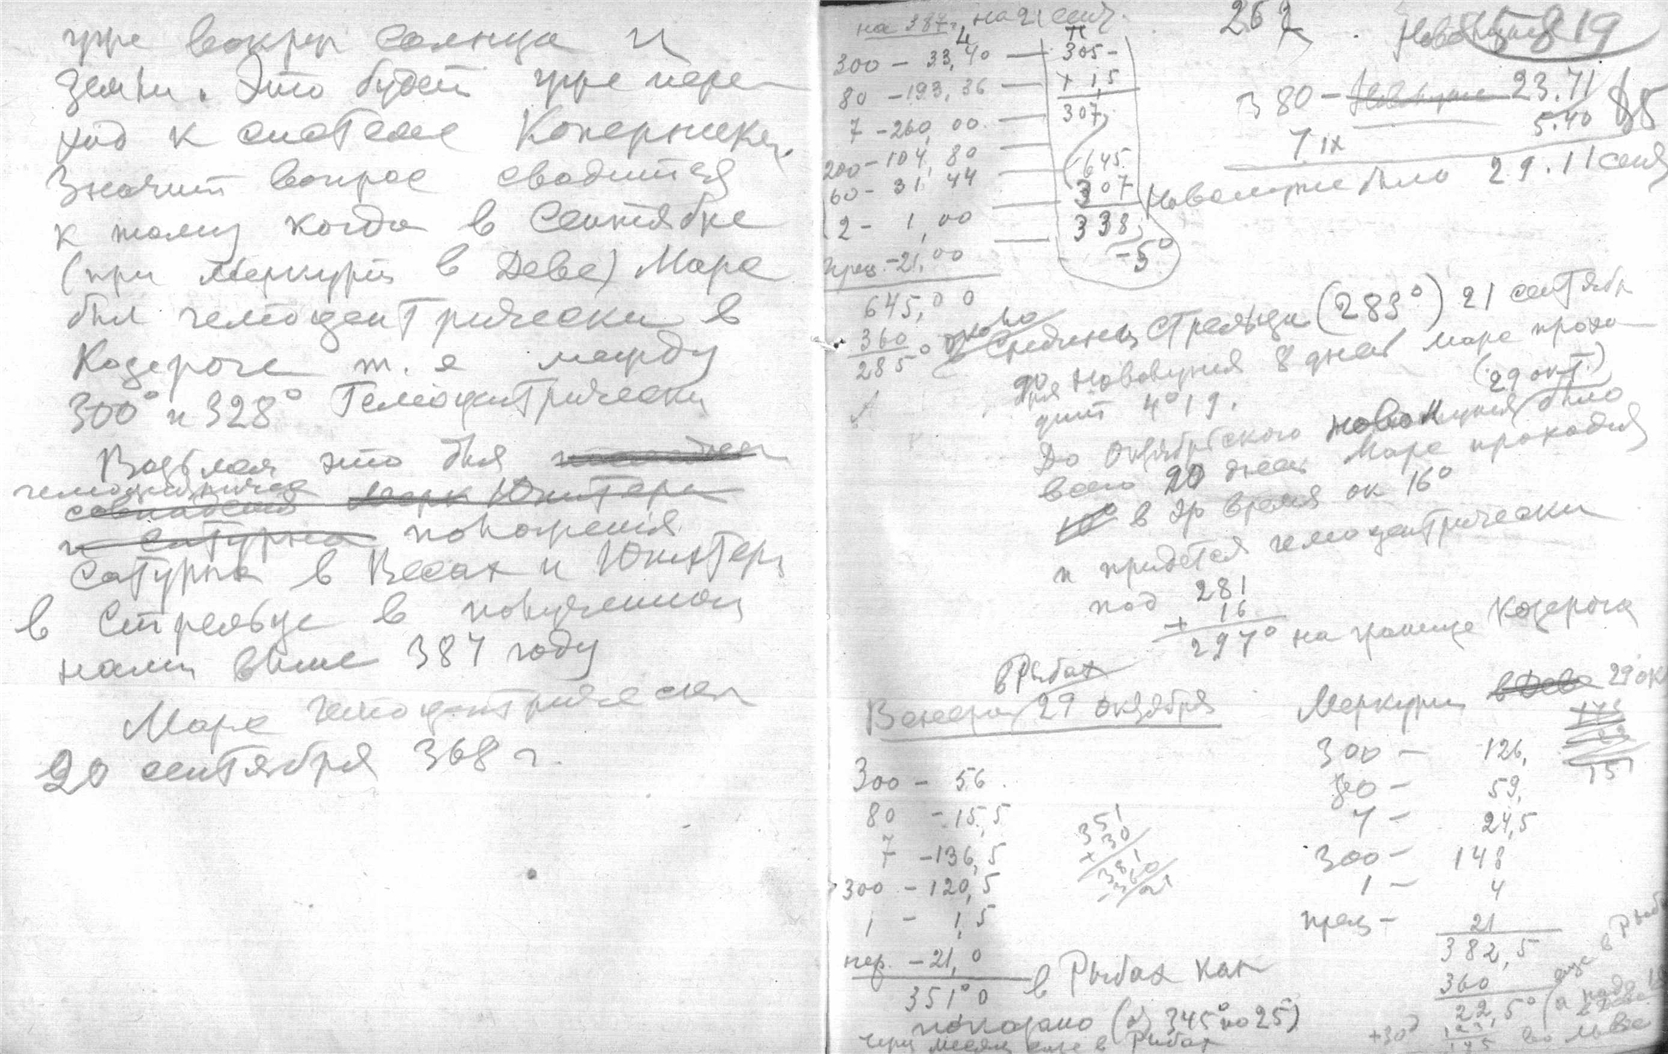 уже вокруг солнца и
Земли. Это будет уже пере-
ход к системе Коперника.
Значит вопрос сводится
к тому когда в Сентябре
(при Меркурии в Деве) Марс
был гелиоцентрически в
Козероге т. е между
300° и 328° Гелиоцентрически
это был
гелиоцентрическ
совпадения Юпитера
и Сатурна положения
Сатурна в Весах и Юпитера
в Стрельце в полученном
нами выше 387 году
Марс гелиоцентрически
20 сентября 368 г.
на 387 г. на 21 сент.
300 – 33,40 — 305–
80 – 193,36 — + 1,5
7 – 260,00 — 307,
200 – 104,80 — 645
60 – 31,44 — 307
2 – 1,00 — 338,
прец. – 21,00 — –5°
645,00
360
285°
262
5819
380 – 23.71
7 IX 5.40
85
Новолуние было 29.11 сент
около
Стрельца (283°) 21 сентября
до Новолуния 8 дней Марс прохо-
дит 4°19.
(29 окт.)
До Октябрьского новолуния было
всего 20 дней Марс проходил
в это время ок 16°
и придется гелиоцентрически
под 281
+ 16
297° на границе Козерога
в Рыбах
Венера 29 октября
300 – 56
80 – 15,5
7 – 136,5
300 – 120,5
1 – 1,5
пер. – 21,0
351°0 в Рыбах как
показано (от 345° по 25)
через месяц еще в Рыбах
351
+ 30
381
360
21
Меркурий в Деве 29 ок
300 – 126,
80 – 59,
7 – 24,5
300 – 148
1 – 4
прец – 21
382,5
360
22,5°
+30°
151